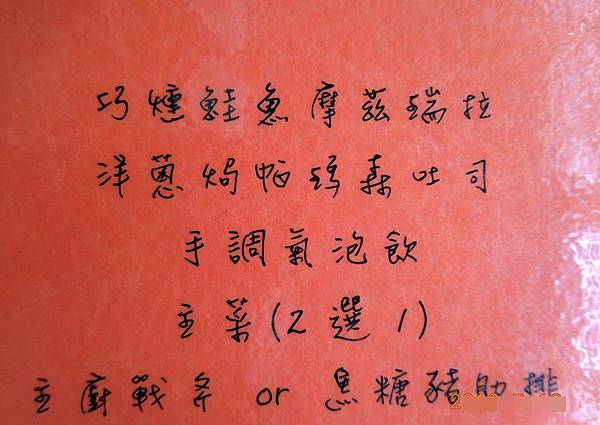 巧燻鮭魚摩茲瑞拉
洋蔥焗帕瑪森吐司
手調氣泡飲
主菜(2選1)
主廚戰斧 or 黑糖豬肋排